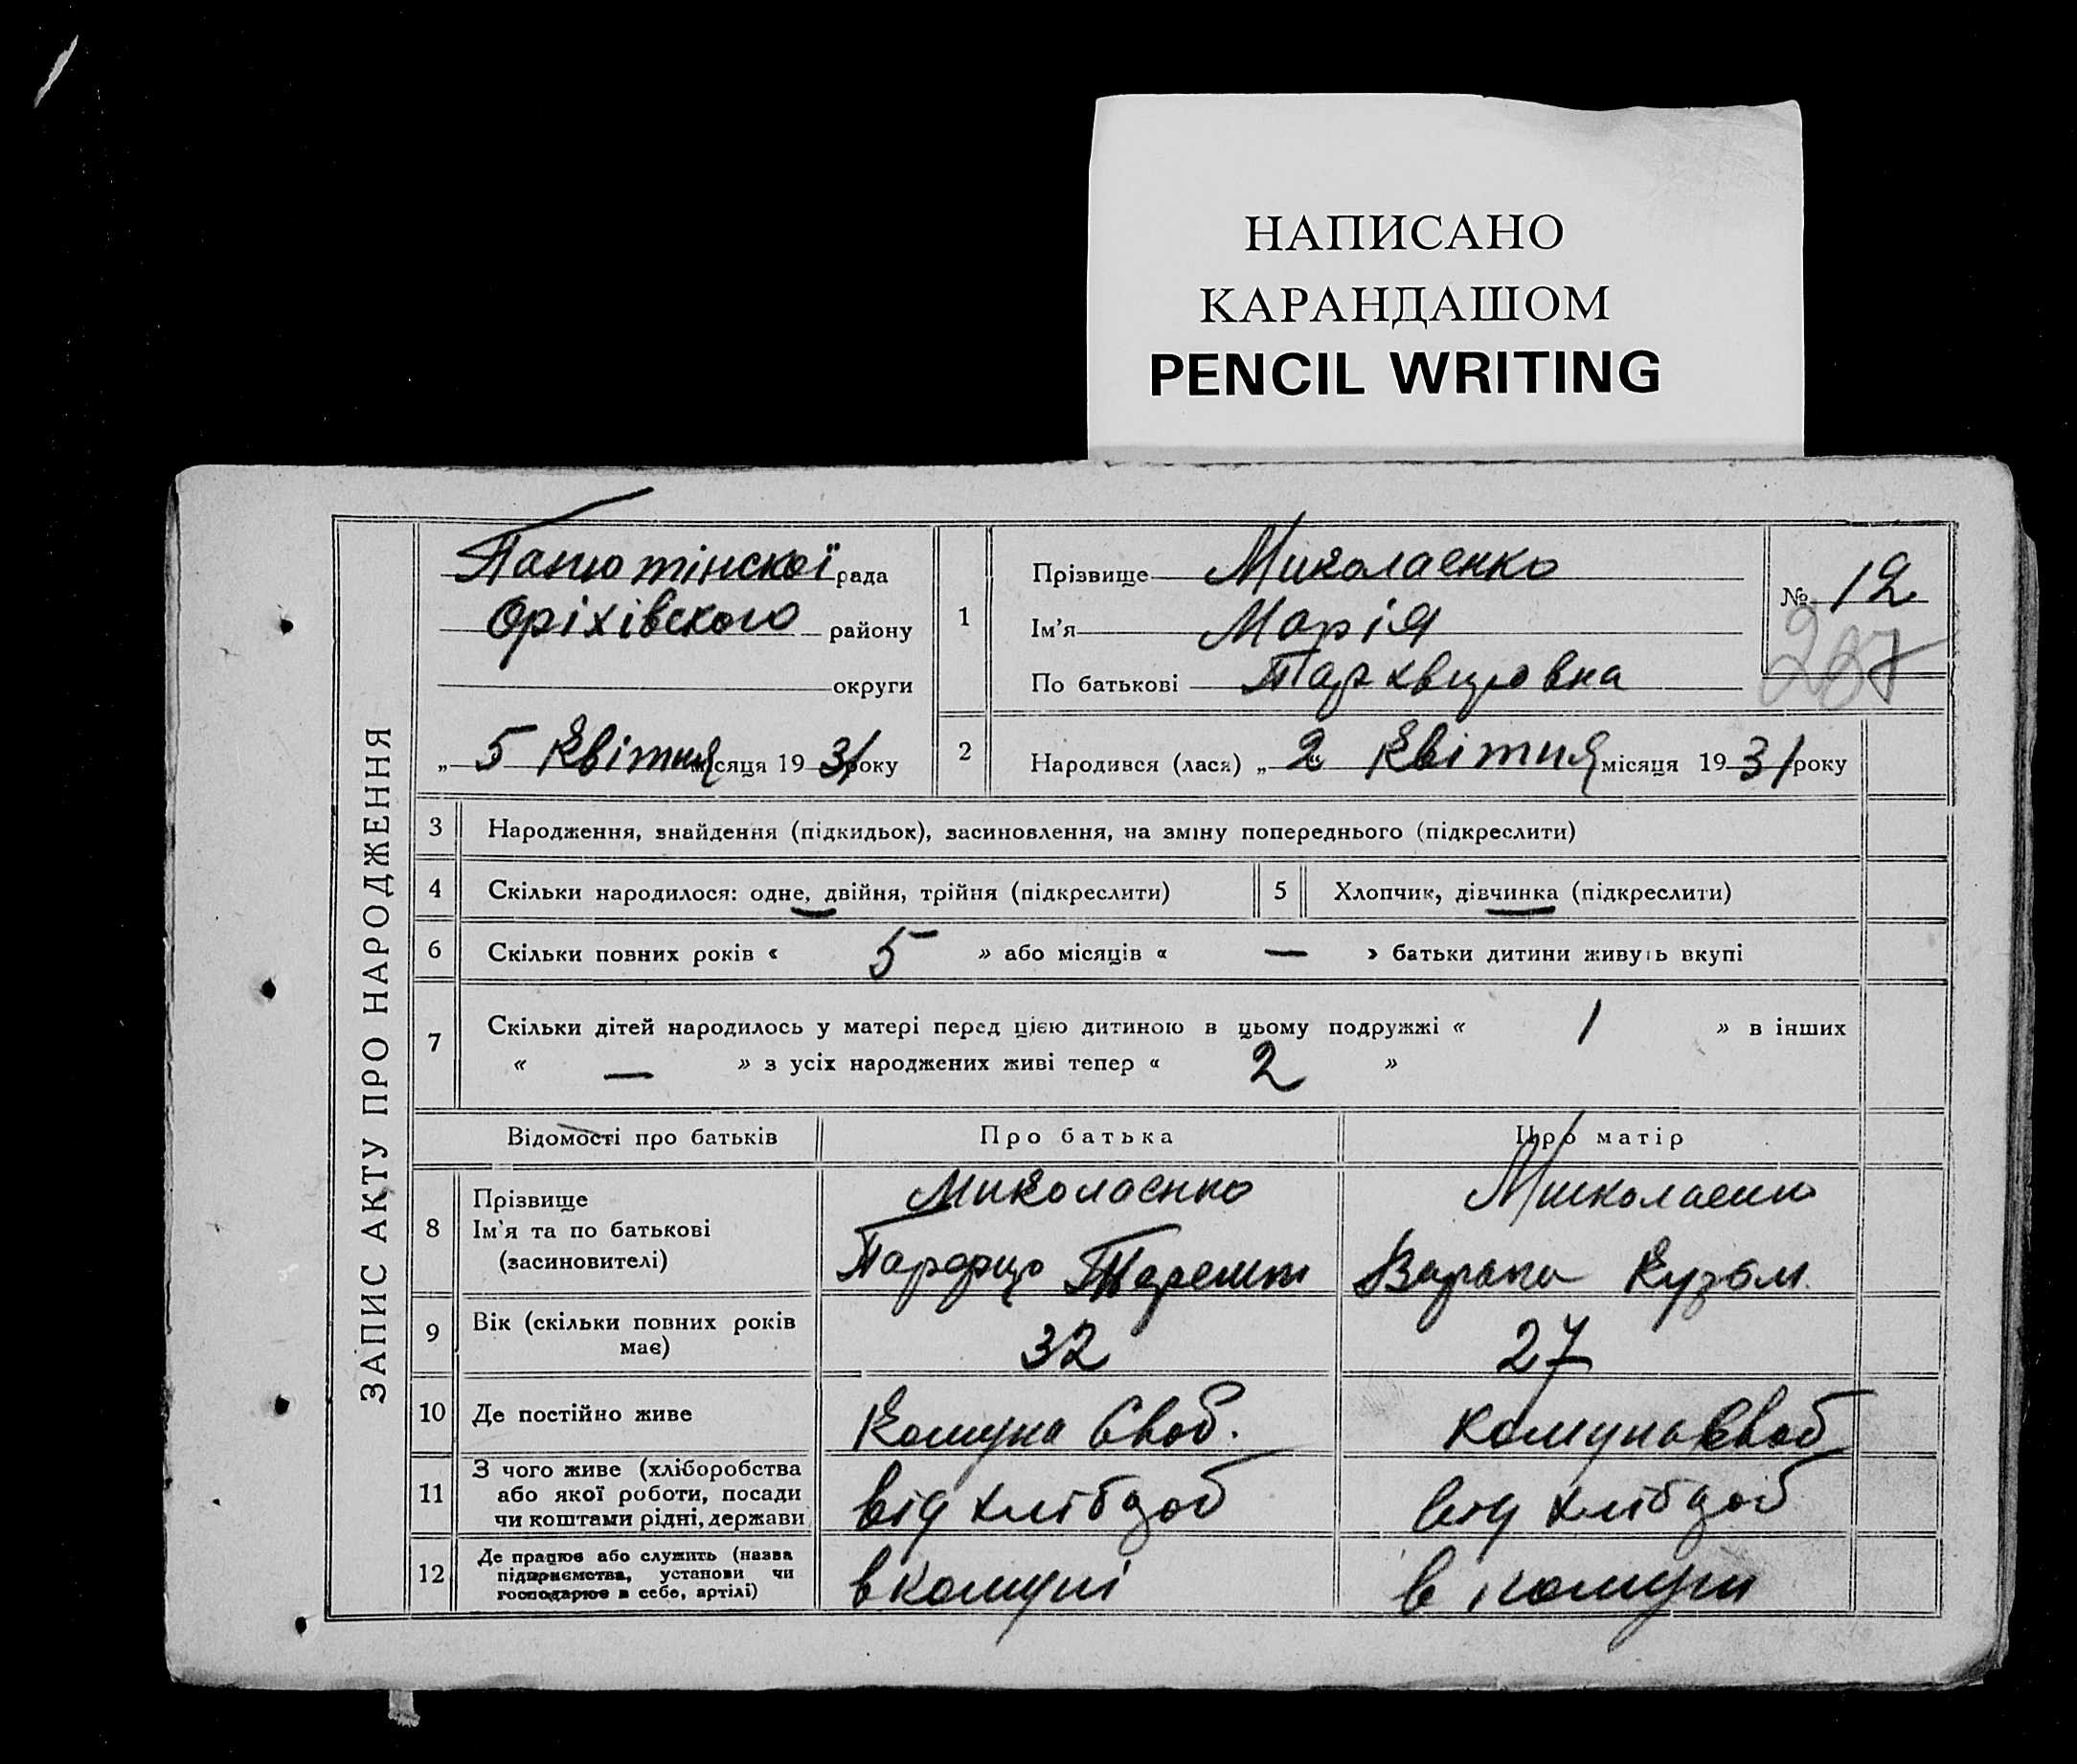 НАПИСАНО
КАРАНДАШОМ
PENCIL WRITING
ЗАПИС АКТУ ПРО НАРОДЖЕННЯ
рада
Оріхівского району
округи
„ 5 Квітня місяця 19 31 року
1
Прізвище Миколаенко
Ім'я Марія
По батькові
№ 12
287
2 Народився (лася) „ 2 Квітня місяця 19 31 року
3 Народження, знайдення (підкидьок), засиновлення, на зміну попереднього (підкреслити)
4 Скільки народилося: одне, двійня, трійня (підкреслити) 5 Хлопчик, дівчинка (підкреслити)
6 Скільки повних років « 5 » або місяців « — » батьки дитини живуть вкупі
7 Скільки дітей народилось у матері перед цією дитиною в цьому подружжі « 1 » в інших
« — » з усіх народжених живі тепер « 2 »
Відомості про батьків Про батька Про матір
8 Прізвище
Ім'я та по батькові
(засиновителі)
Миколаенко

Кузьм.
9 Вік (скільки повних років
має)
32 27
10 Де постійно живе Комуна Своб. Комуна Своб
11 З чого живе (хліборобства
або якої роботи, посади
чи коштами рідні, держави
від хлібороб від хлібороб
12 Де працює або служить (назва
підприємства, установи чи
господарює в себе, артілі)
в комуні в комуні